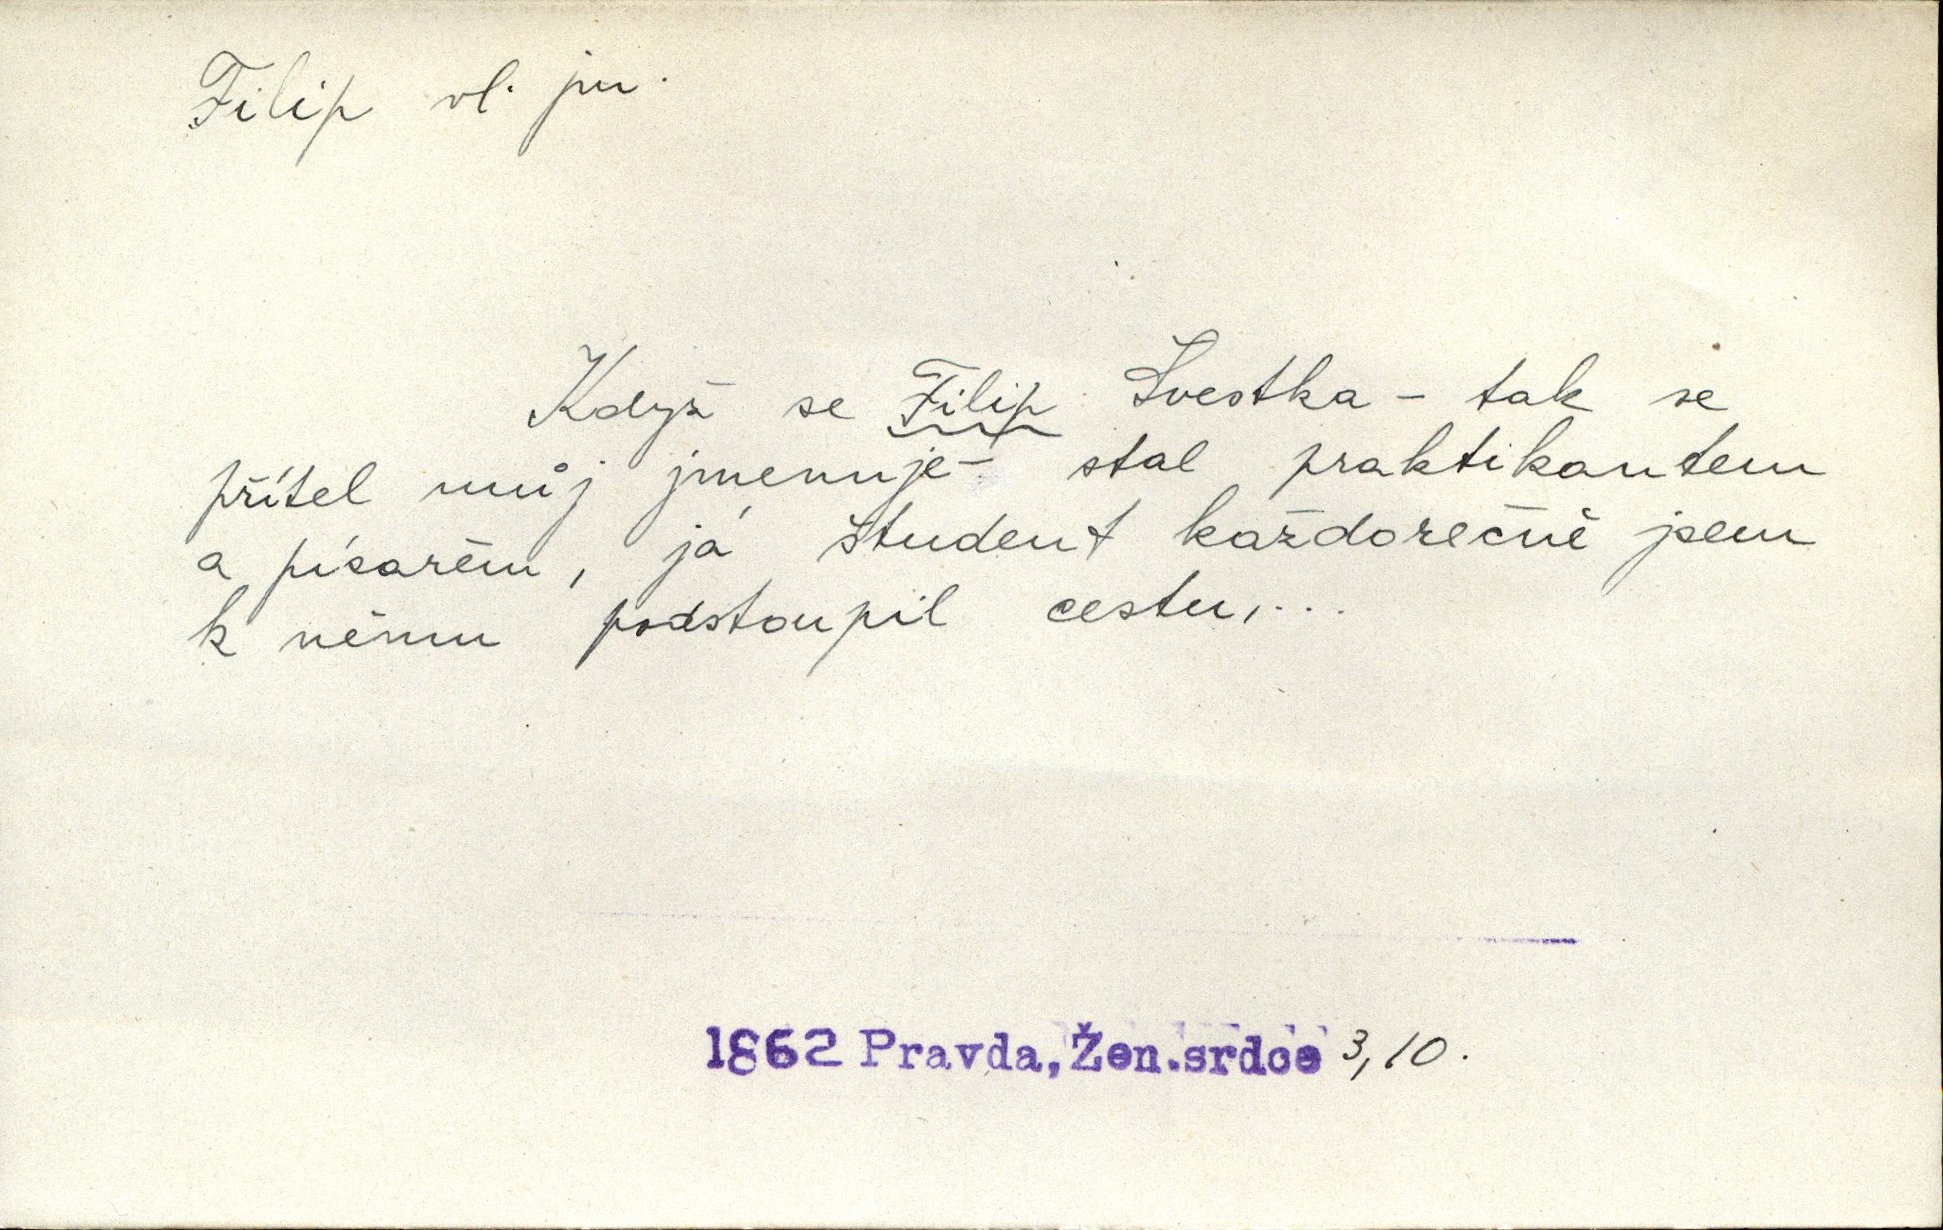 Filip vl. jm.
Když se Filip Švestka - tak se
přítel můj jmenuje - stal praktikantem
a písařem, já študent každoročně jsem
k němu podstoupil cestu,...
1862 Pravda, Žen.srdce 3,10.